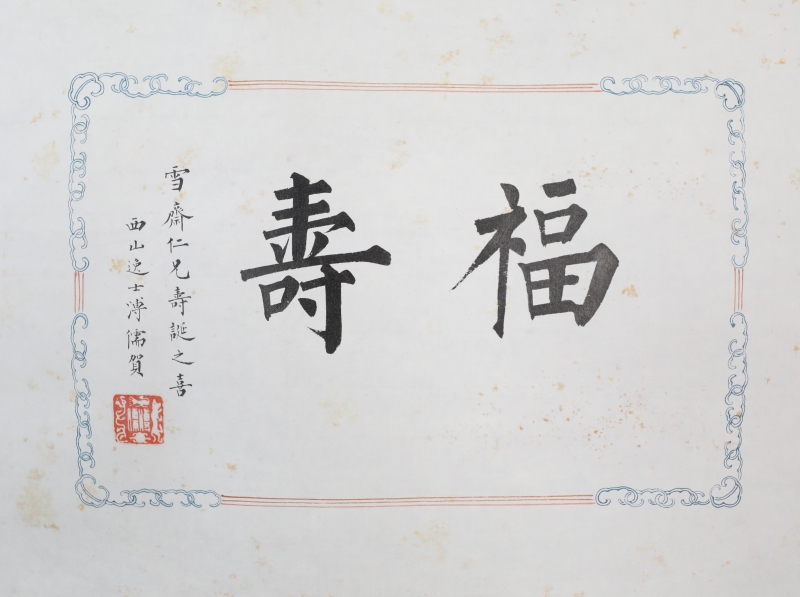 福壽
雪齋仁兄壽誕之喜
西山逸士溥儒賀